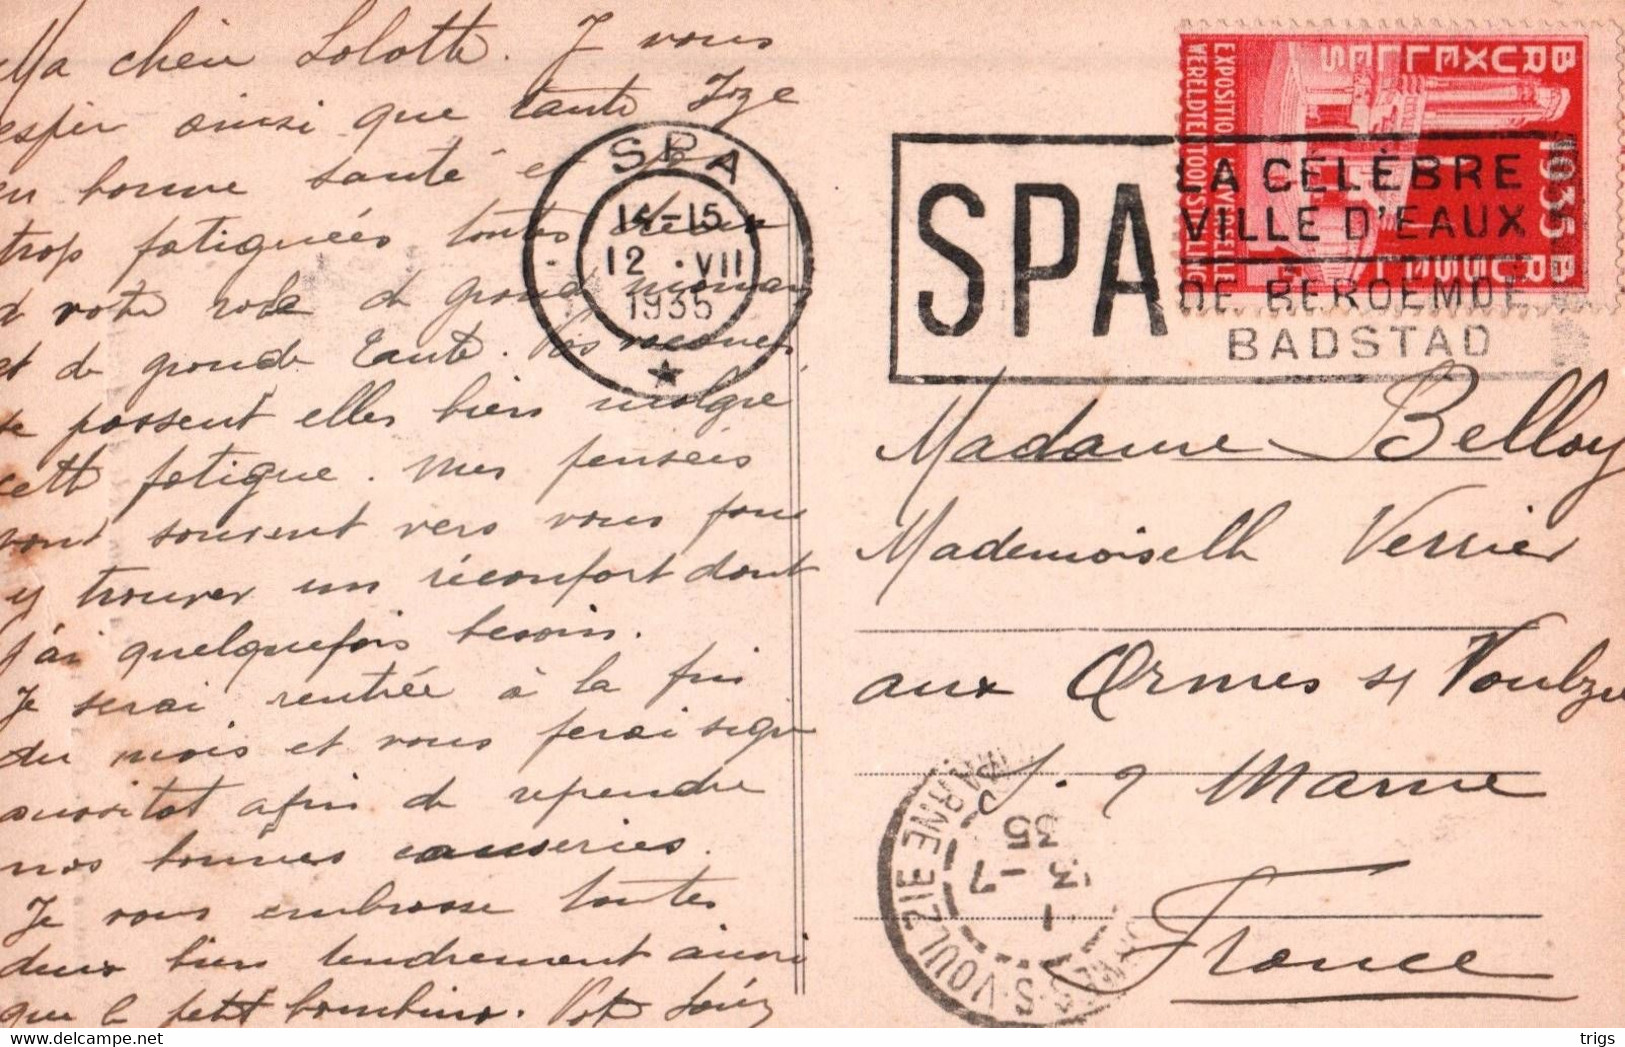 Ma chère Lolotte. J vous
espèr ainsi que tante Joze
en bonne santé et
trop fatiguées toutes deux
d votre role d grand maman
et de grande tante. Vos
se passent elles bien malgré
cette fatigue. Mes pensées
vont souvent vers vous pour
y trouver un réconfort dont
j'ai quelquefois besoin.
Je serai rentrée à la fin
du mois et vous ferai signe
aussitot afin de reprendre
nos bonnes causeries.
Je vous embrasse toutes
deux bien tendrement ainsi
que le petit bambino.
SPA
14-15
12 · VII
1935
SPA
LA CÉLÈBRE
VILLE D'EAUX
DE BEROEMDE
BADSTAD
BRUXELLES
EXPOSITION UNIVERSELLE
WERELDTENTOONSTELLING
1935
BRUSSEL
Madame Belloy
Mademoiselle Verrier
aux Ormes s/ Voulzie
S. & Marne
France
S. VOULZIE
MARNE
13 - 7
35
trigs